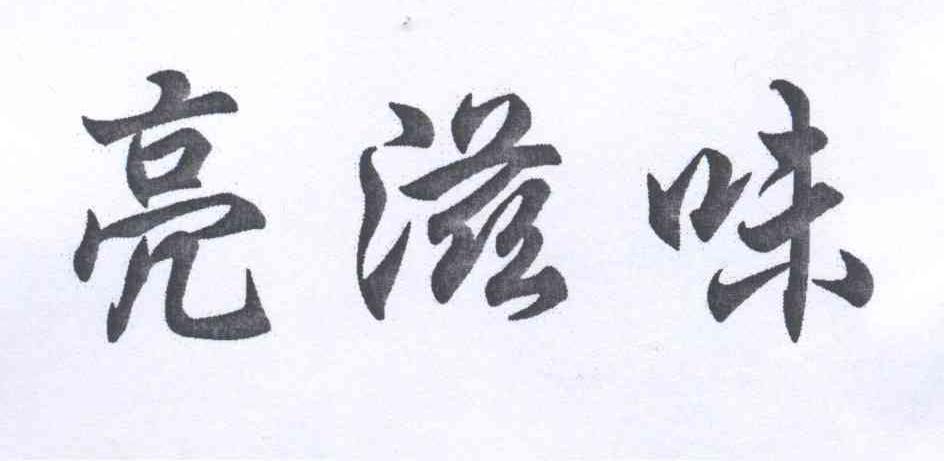 亮滋味